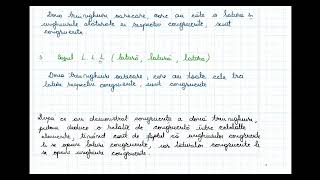 Două triunghiuri oarecare, care au câte o latură și
unghiurile alăturate ei respectiv congruente, sunt
congruente
3 Cazul L.L.L. (latură, latură, latură)
Două triunghiuri oarecare, care au toate cele trei
laturi respectiv congruente, sunt congruente
După ce am demonstrat congruența a două triunghiuri,
putem deduce și relații de congruență între celelalte
elemente, ținând cont de faptul că unghiurilor congruente
li se opun laturi congruente, iar laturilor congruente li
se opun unghiuri congruente.